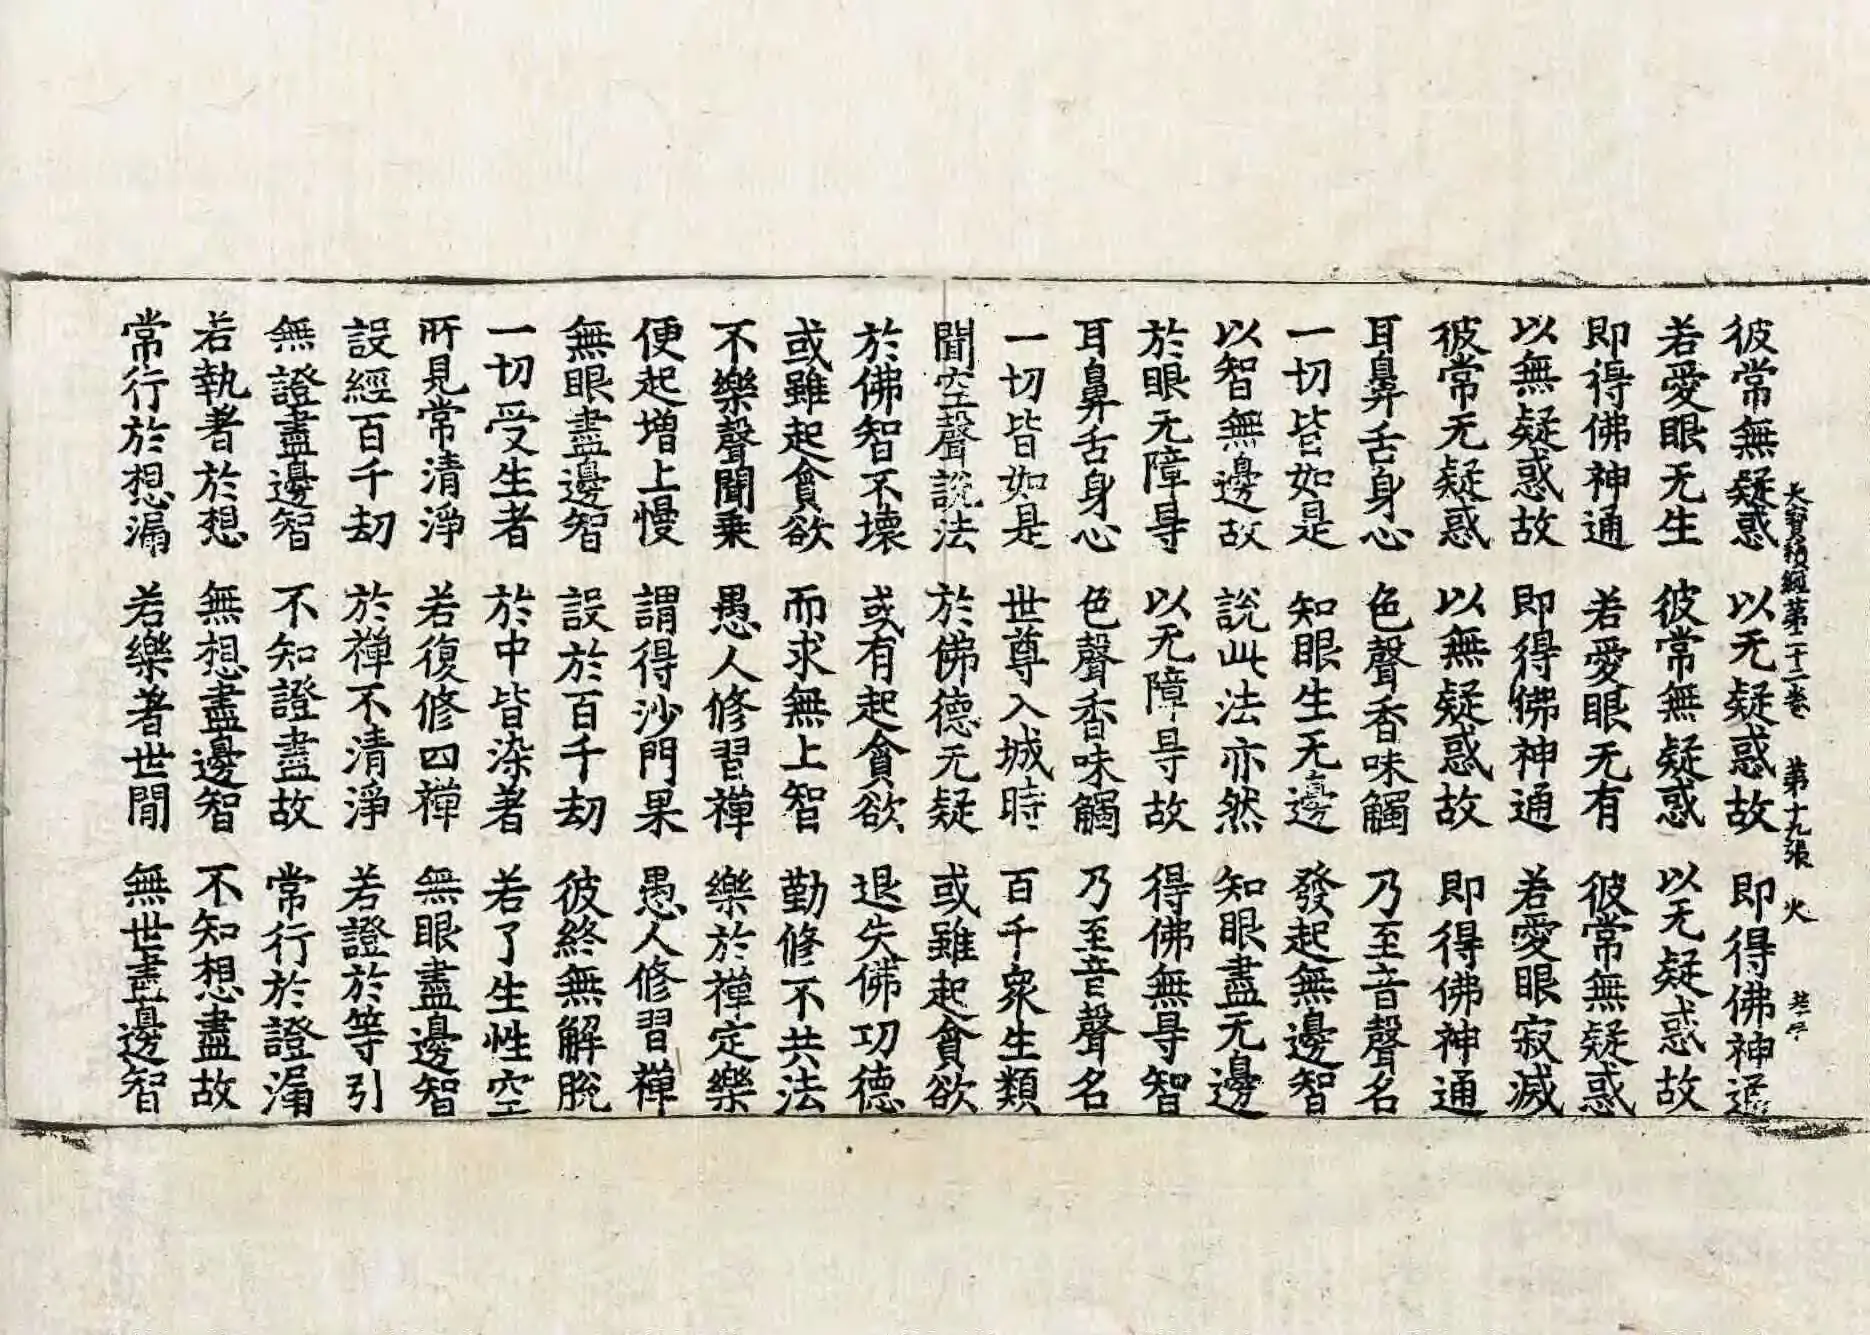 大寶積經第二十二卷 第十九張 火
彼常無疑惑 以无疑惑故 即得佛神通
若愛眼无生 彼常無疑惑 以无疑惑故
即得佛神通 若愛眼无有 彼常無疑惑
以無疑惑故 即得佛神通 若愛眼寂滅
彼常无疑惑 以無疑惑故 即得佛神通
耳鼻舌身心 色聲香味觸 乃至音聲名
一切皆如是 知眼生无邊 發起無邊智
以智無邊故 說此法亦然 知眼盡无邊
於眼无障㝵 以无障㝵故 得佛無㝵智
耳鼻舌身心 色聲香味觸 乃至音聲名
一切皆如是 世尊入城時 百千衆生類
聞空聲說法 於佛德无疑 或雖起貪欲
於佛智不壞 或有起貪欲 退失佛功德
或雖起貪欲 而求無上智 勤修不共法
不樂聲聞乗 愚人修習禪 樂於禪定樂
便起增上慢 謂得沙門果 愚人修習禪
無眼盡邊智 設於百千劫 彼終無解脫
一切受生者 於中皆染著 若了生性空
所見常清淨 若復修四禪 無眼盡邊智
設經百千劫 於禪不清淨 若證於等引
無證盡邊智 不知證盡故 常行於證漏
若執著於想 無想盡邊智 不知想盡故
常行於想漏 若樂著世間 無世盡邊智